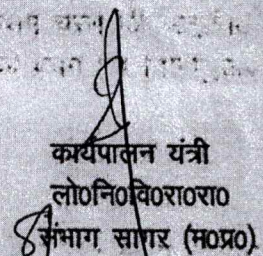 कार्यपालन यंत्री
लो0नि0वि0रा0रा0
संभाग सागर (म0प्र0)